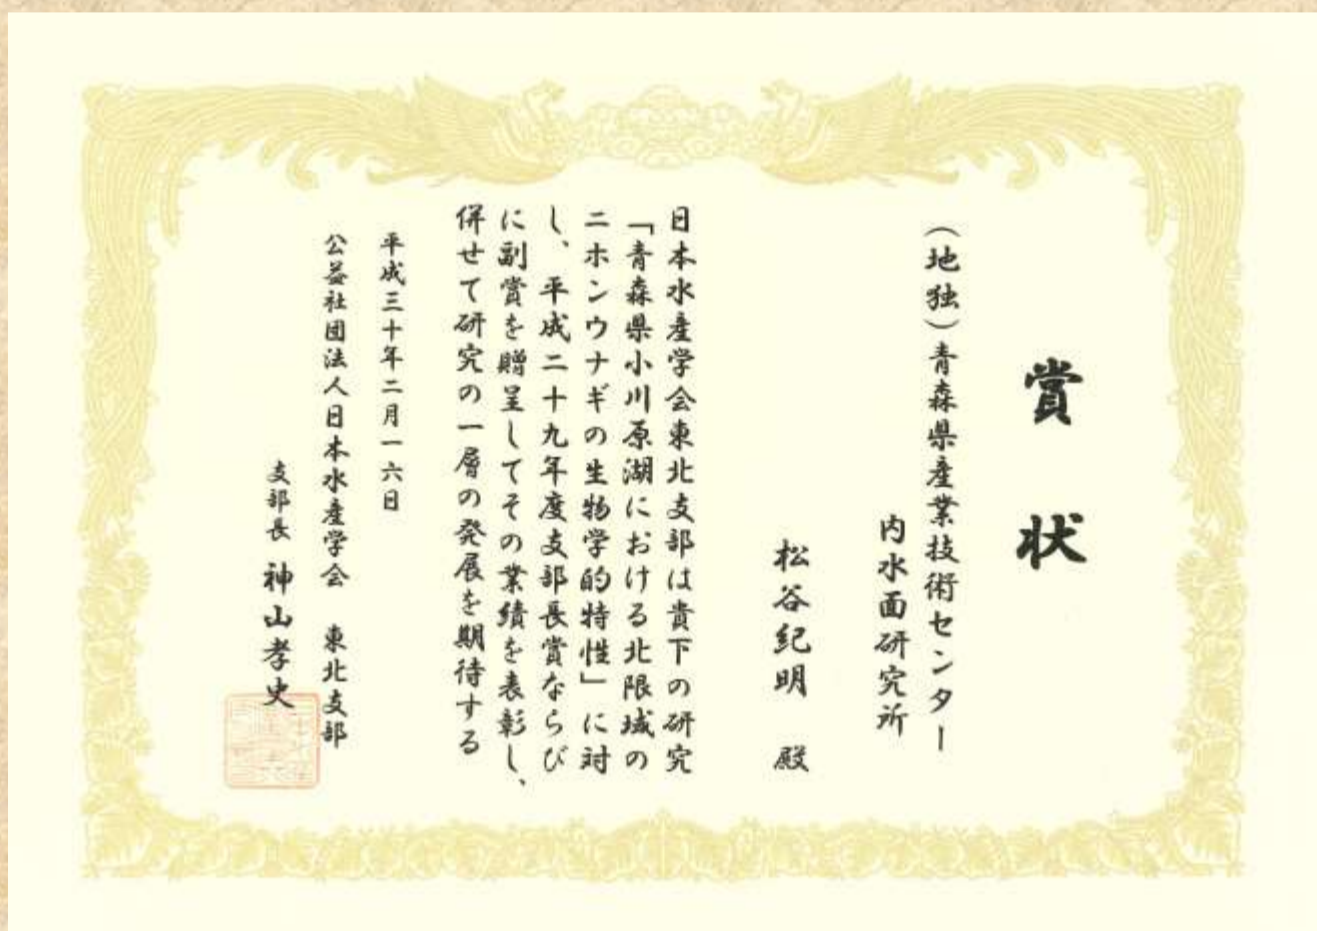 賞状
（地独）青森県産業技術センター
内水面研究所
松谷紀明　殿
日本水産学会東北支部は貴下の研究
「青森県小川原湖における北限域の
ニホンウナギの生物学的特性」に対
し、平成二十九年度支部長賞ならび
に副賞を贈呈してその業績を表彰し、
併せて研究の一層の発展を期待する
平成三十年二月一六日
公益社団法人日本水産学会　東北支部
支部長　神山孝史